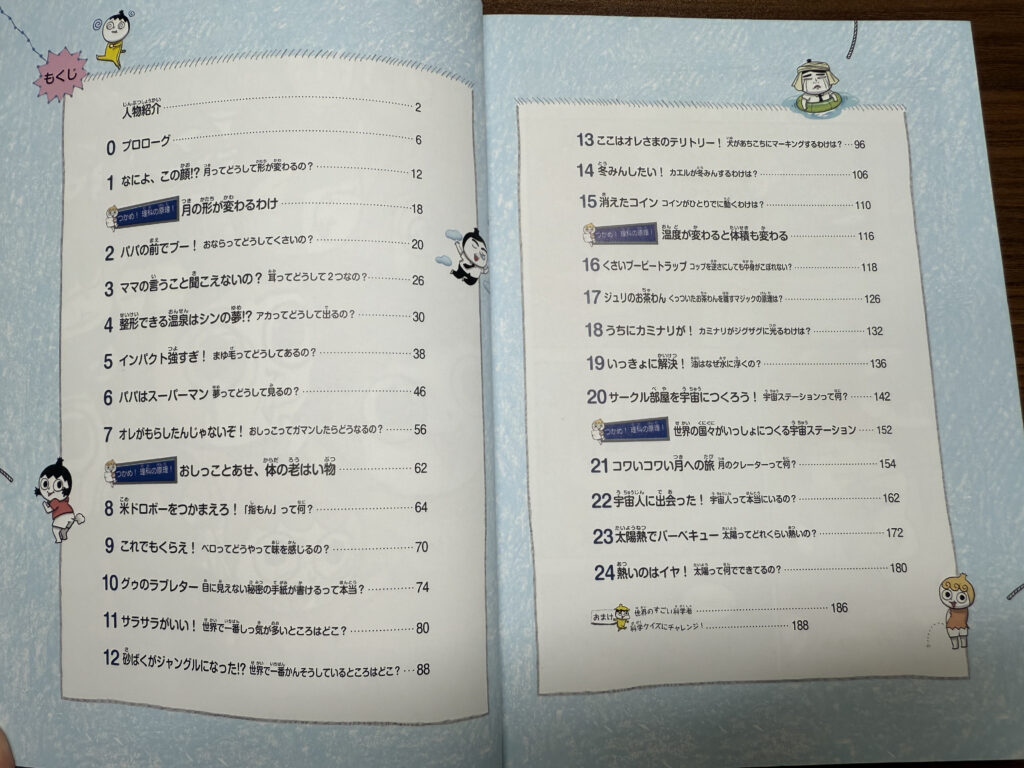 もくじ
人物紹介 2
0 プロローグ 6
1 なによ、この顔!? 月ってどうして形が変わるの？ 12
つかめ！理科の原理！ 月の形が変わるわけ 18
2 パパの前でプー！ おならってどうしてくさいの？ 20
3 ママの言うこと聞こえないの？ 耳ってどうして2つなの？ 26
4 整形できる温泉はシンの夢!? アカってどうして出るの？ 30
5 インパクト強すぎ！ まゆ毛ってどうしてあるの？ 38
6 パパはスーパーマン 夢ってどうして見るの？ 46
7 オレがもらしたんじゃないぞ！ おしっこってガマンしたらどうなるの？ 56
つかめ！理科の原理！ おしっことあせ、体の老はい物 62
8 米ドロボーをつかまえろ！ 「指もん」って何？ 64
9 これでもくらえ！ ベロってどうやって味を感じるの？ 70
10 グゥのラブレター 目に見えない秘密の手紙が書けるって本当？ 74
11 サラサラがいい！ 世界で一番しっ気が多いところはどこ？ 80
12 砂ばくがジャングルになった!? 世界で一番かんそうしているところはどこ？ 88
13 ここはオレさまのテリトリー！ 犬があちこちにマーキングするわけは？ 96
14 冬みんしたい！ カエルが冬みんするわけは？ 106
15 消えたコイン コインがひとりでに動くわけは？ 110
つかめ！理科の原理！ 温度が変わると体積も変わる 116
16 くさいブービートラップ コップを逆さにしても中身がこぼれない？ 118
17 ジュリのお茶わん くっついたお茶わんを離すマジックの原理は？ 126
18 うちにカミナリが！ カミナリがジグザグに光るわけは？ 132
19 いっきょに解決！ 油はなぜ水に浮くの？ 136
20 サークル部屋を宇宙につくろう！ 宇宙ステーションって何？ 142
つかめ！理科の原理！ 世界の国々がいっしょにつくる宇宙ステーション 152
21 コワいコワい月への旅 月のクレーターって何？ 154
22 宇宙人に出会った！ 宇宙人って本当にいるの？ 162
23 太陽熱でバーベキュー 太陽ってどれくらい熱いの？ 172
24 熱いのはイヤ！ 太陽って何でできてるの？ 180
おまけ 世界のすごい科学者 186
科学クイズにチャレンジ！ 188